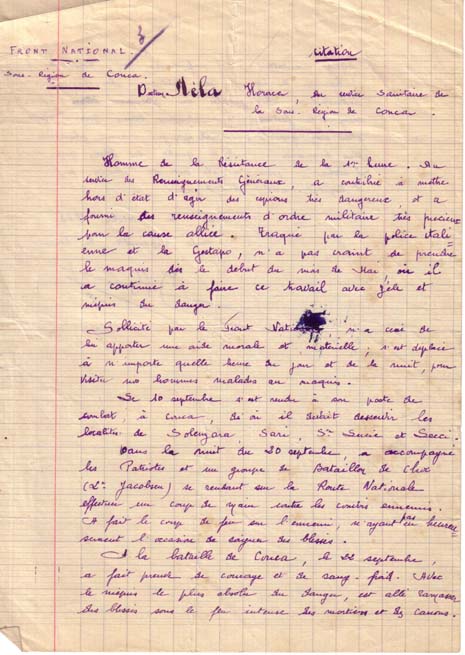 Front National.
Sous-Région de Conca.
Citation
Docteur Mela Horace, du service Sanitaire de
la Sous-Région de Conca.
Homme de la Résistance de la 1ère heure. Au
service des Renseignements Généraux, a contribué à mettre
hors d'état d'agir des espions très dangereux, et a
fourni des renseignements d'ordre militaire très précieux
pour la cause alliée. Traqué par la police itali=
enne et la Gestapo, n'a pas craint de prendre
le maquis dès le début du mois de Mai, où il
a continué à faire ce travail avec zèle et
mépris du danger.
Sollicité par le Front National, n'a cessé de
lui apporter une aide morale et matérielle; s'est déplacé
à n'importe quelle heure du jour et de la nuit, pour
visiter nos hommes malades au maquis.
Le 10 septembre s'est rendu à son poste de
combat, à Conca, d'où il devait desservir les
localités de Solenzara, Sari, Ste Lucie et Lecci.
Dans la nuit du 20 septembre, a accompagné
les Patriotes et un groupe de Bataillon de Choc
(Lt Jacobsen) se rendant sur la Route Nationale
effectuer un coup de main contre les convois ennemis.
A fait le coup de feu sur l'ennemi, n'ayant pas heureu=
sement l'occasion de soigner des blessés.
A la bataille de Conca, le 22 septembre,
a fait preuve de courage et de sang-froid. Avec
le mépris le plus absolu du danger, est allé ramasser
des blessés sous le feu intense des mortiers et des canons.